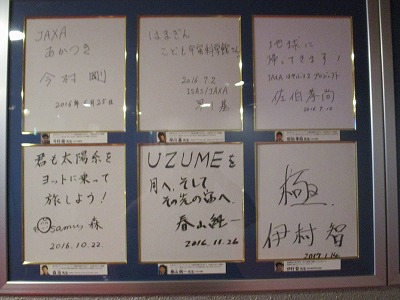 JAXA
あかつき
今村 剛
2016年6月25日
はまぎん
こども宇宙科学館さん
2016.7.2
ISAS/JAXA
地球に
帰ってきます！
JAXA はやぶさ2 プロジェクト
佐伯孝尚
2016.7.16
君も太陽系を
ヨットに乗って
旅しよう！
Osamu 森
2016.10.22.
UZUMEを
月へ、そして
その先の宙へ
春山純一
2016.11.26
極.
伊村 智
2017.1.14.